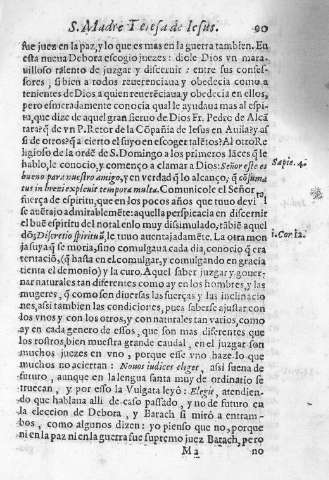 S. Madre Teresa de Iesus. 90
fue juez en la paz, y lo que es mas en la guerra tambien. En
esta nueua Debora escogio juezes: diole Dios vn mara-
uilloso talento de juzgar y discernir: entre sus confes-
sores, si bien a todos reuerenciaua y obedecia como a
tenientes de Dios a quien reuerẽciaua y obedecia en ellos,
pero esmeradamente conocia qual le ayudaua mas al espi-
ritu, que dize de aquel gran sieruo de Dios Fr. Pedro de Alcã
tara? q̃ de vn P. Retor de la Cõpañia de Iesus en Auila? y as
si de otros? q̃ a cierto el suyo en escoger talẽtos? Al otro Re
ligioso de la ordẽ de S. Domingo a los primeros lãces q̃ le
hablo, le conocio, y començo a clamar a Dios: Señor este es
bueno para nuestro amigo, y en verdad q̃ lo alcanço, q̃ cõsuma
tus in breui expleuit tempora multa. Comunicole el Señor
fuerça de espiritu, que en los pocos años que tuuo de vi
se auẽtajo admirablemẽte: aquella perspicacia en discernir
el buẽ espiritu del no tal en lo muy dissimulado, tãbiẽ aquel
dõ; Discretio spirituũ, le tuuo auentajadamẽte. La otra mon
ja suya q̃ se moria, sino comulgaua cada dia, conocio q̃ era
tentacio, (q̃ hasta en el comulgar, y comulgando en gracia
tienta el demonio) y la curo. Aquel saber juzgar y gouer-
nar naturales tan diferentes como ay en los hombres, y las
mugeres, q̃ como son diuersas las fuerças y las inclinacio
nes, assi tambien las condiciones, pues saberse ajustar con
los vnos y con los otros, y con naturales tan varios, como
ay en cada genero de essos, que son mas diferentes que
los rostros, bien muestra grande caudal, en el juzgar son
muchos juezes en vno, porque esse vno haze lo que
muchos no aciertan: Nouos iudices eliget, assi suena de
futuro, aunque en la lengua santa muy de ordinario se
truecan, y por esso la Vulgata leyó: Elegit, atendien-
do que hablaua alli de caso passado, y no de futuro en
la eleccion de Debora, y Barach si miró a entram-
bos, como algunos dizen: yo pienso que no, porque
ni en la paz ni en la guerra fue supremo juez Barach, pero
M 2 no
Sapie. 4.
1. Cor. 12.